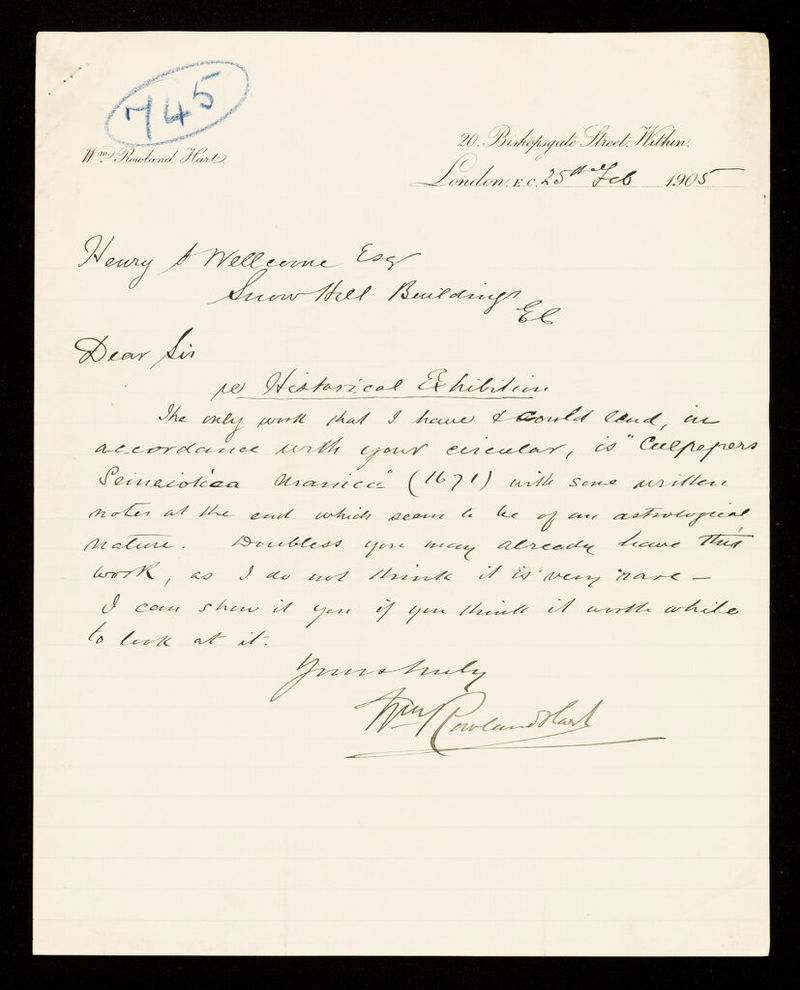 745
Wm Rowland Hart
20, Bishopsgate Street, Within,
London, E.C. 25th Feb 1905
Henry S Wellcome Esqr
Snow Hill Buildings
EC
Dear Sir
re Historical Exhibition
The only work that I have & could lend, in
accordance with your circular, is "Culpepers
Semeiotica Uranica" (1671) with some written
notes at the end which seem to be of an astrological
nature. Doubtless you may already have this
work, as I do not think it is very rare —
I can show it you if you think it worth while
to look at it.
Yours truly
Wm Rowland Hart